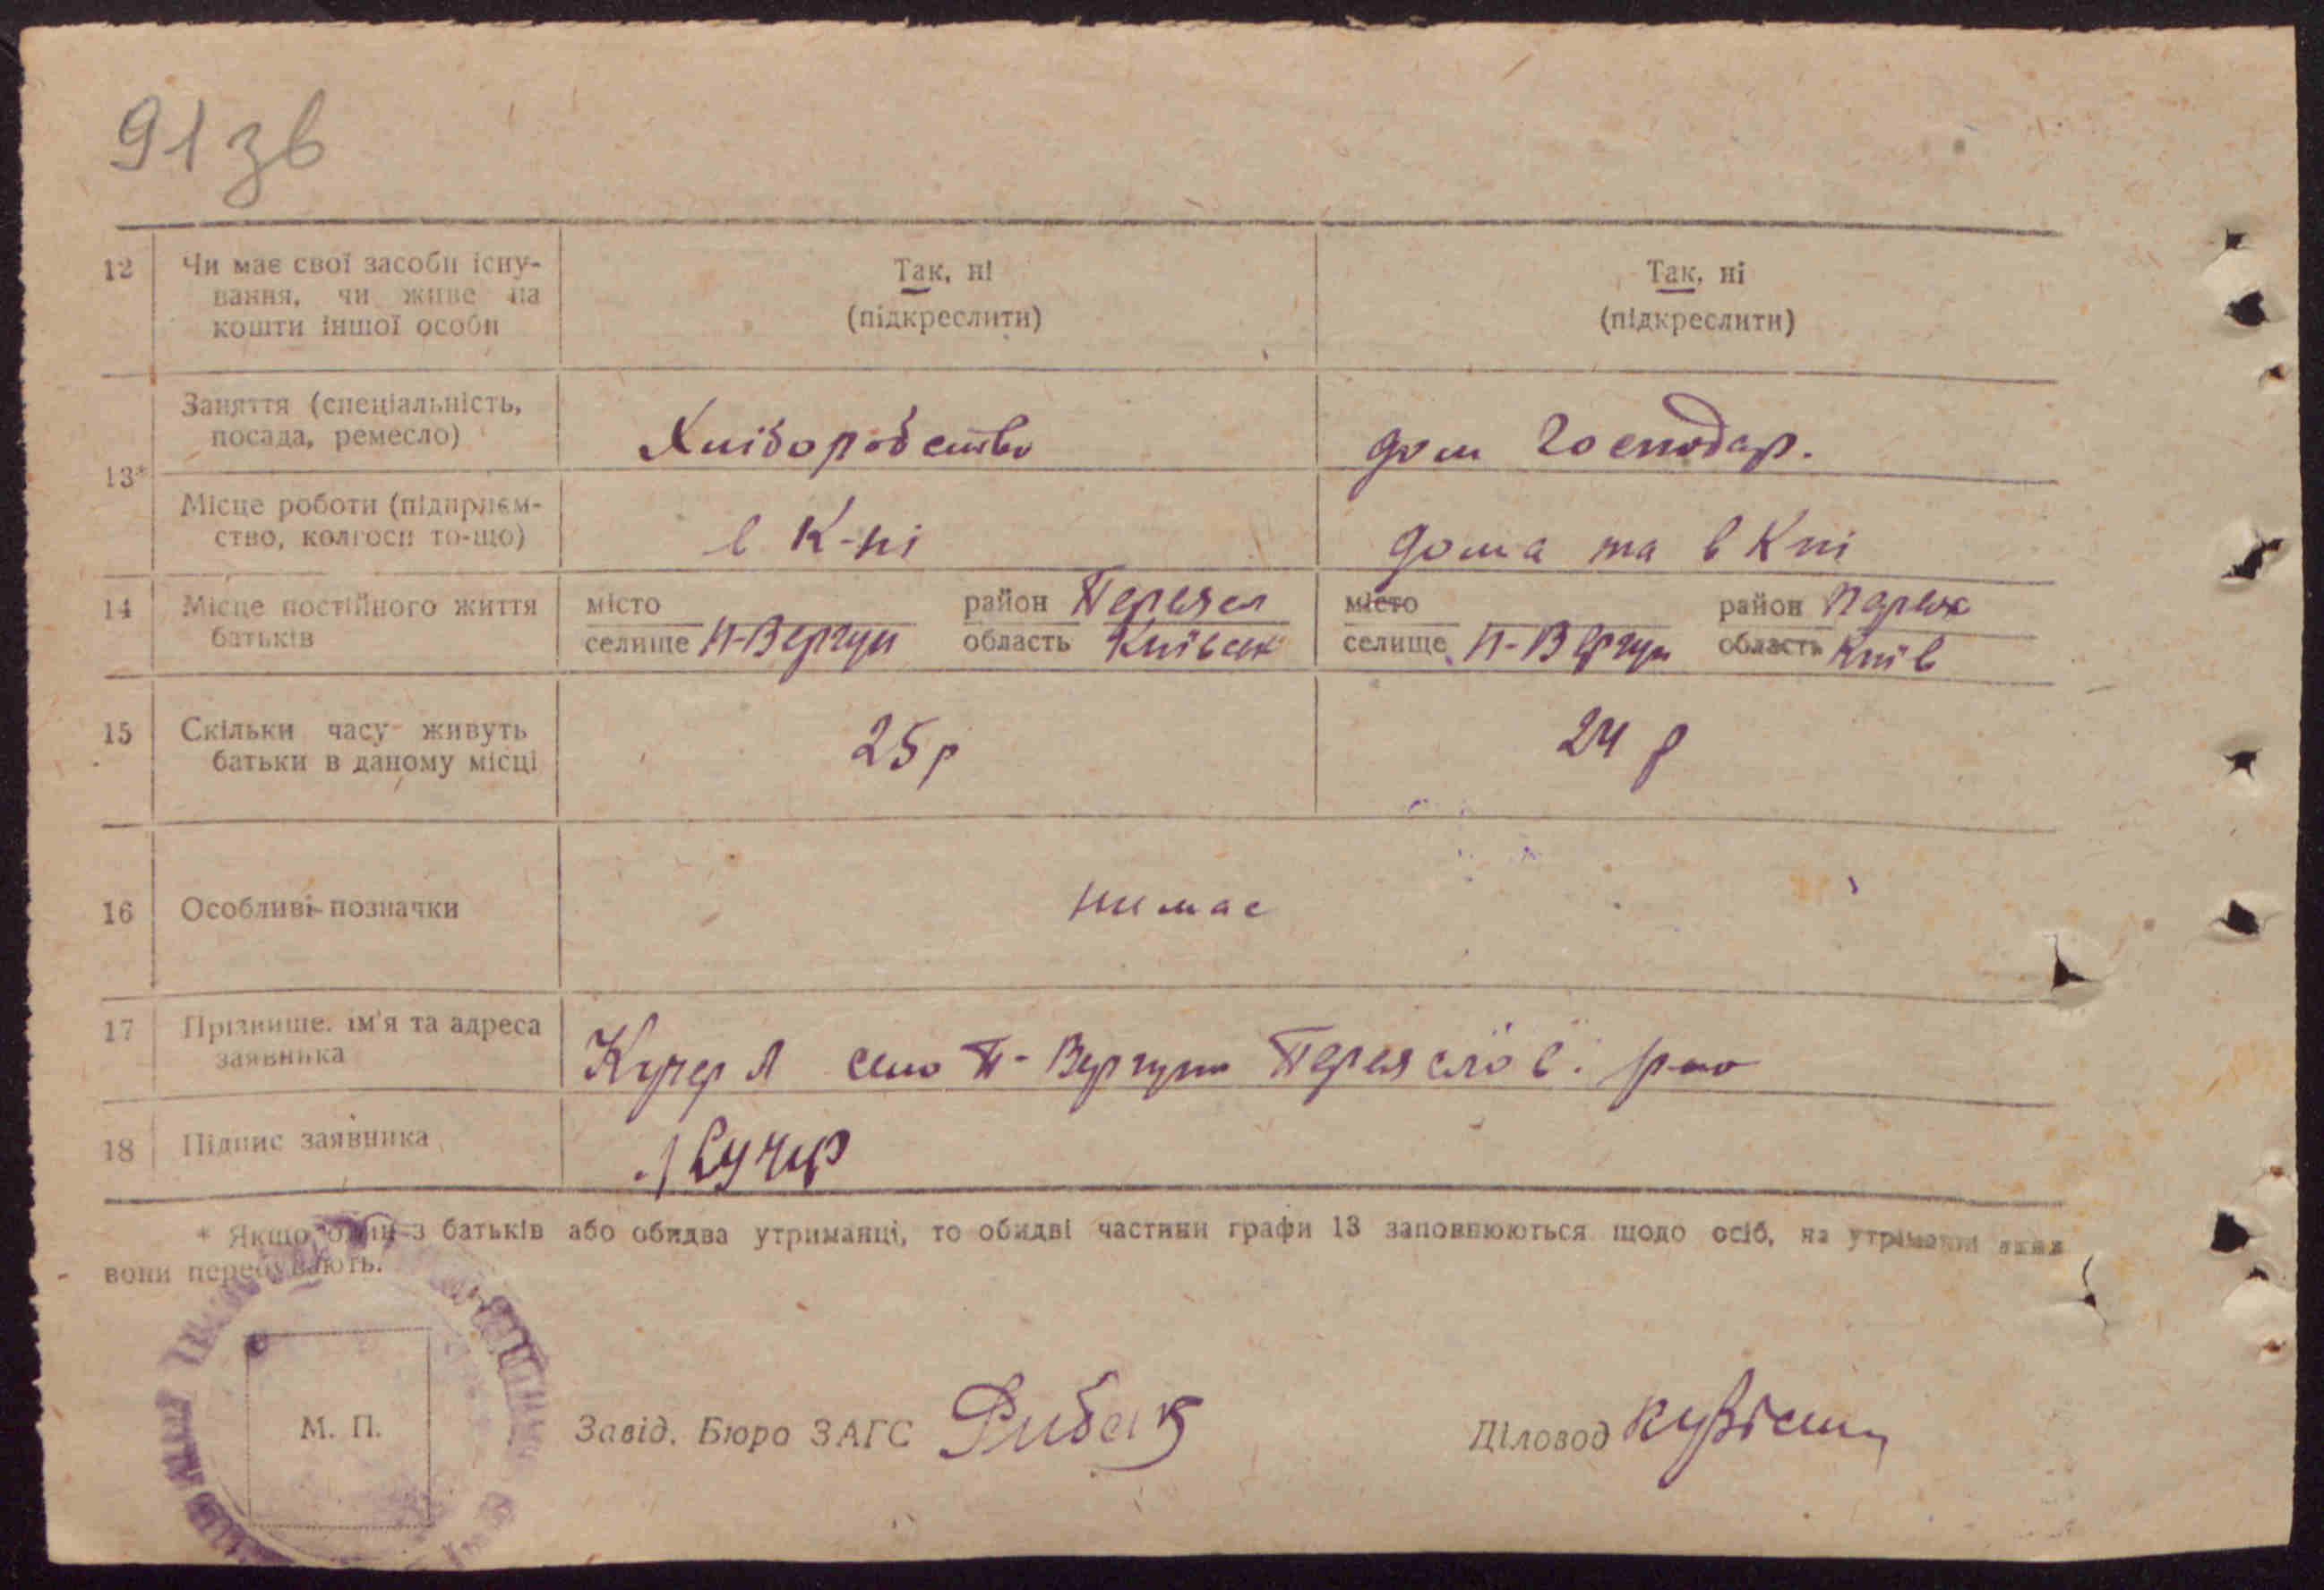 91зв
12 Чи має свої засоби існу- Так, ні Так, ні
вання, чи живе на (підкреслити) (підкреслити)
кошти іншої особи
13* Заняття (спеціальність, Хліборобство дом господар.
посада, ремесло)
Місце роботи (підприєм- в К-пі дома та в Кпі
ство, колгосп то-що)
14 Місце постійного життя місто район Переясл місто район
батьків селище П-Вергун область Київськ селище П-Вергун область Київ
15 Скільки часу живуть 25 р 24 р
батьки в даному місці
16 Особливі позначки нимає
17 Прізвище, ім'я та адреса Кучер Л село П-Вергуни Переяслов. р-но
заявника
18 Підпис заявника Кучер
* Якщо один з батьків або обидва утриманці, то обидві частини графи 13 заповнюються щодо осіб, на утриманні яких
вони перебувають.
М. П. Завід. Бюро ЗАГС Рибак Діловод